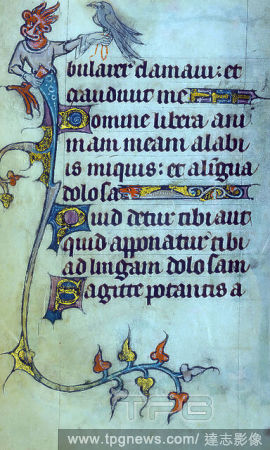 bularer clamaui: et
exaudiuit me
Domine libera ani
mam meam a labi
is iniquis: et a lingua
dolosa
Quid detur tibi aut
quid apponatur tibi
ad lingam dolosam
Sagitte potentis a
TPG
www.tpgnews.com/ 達志影像